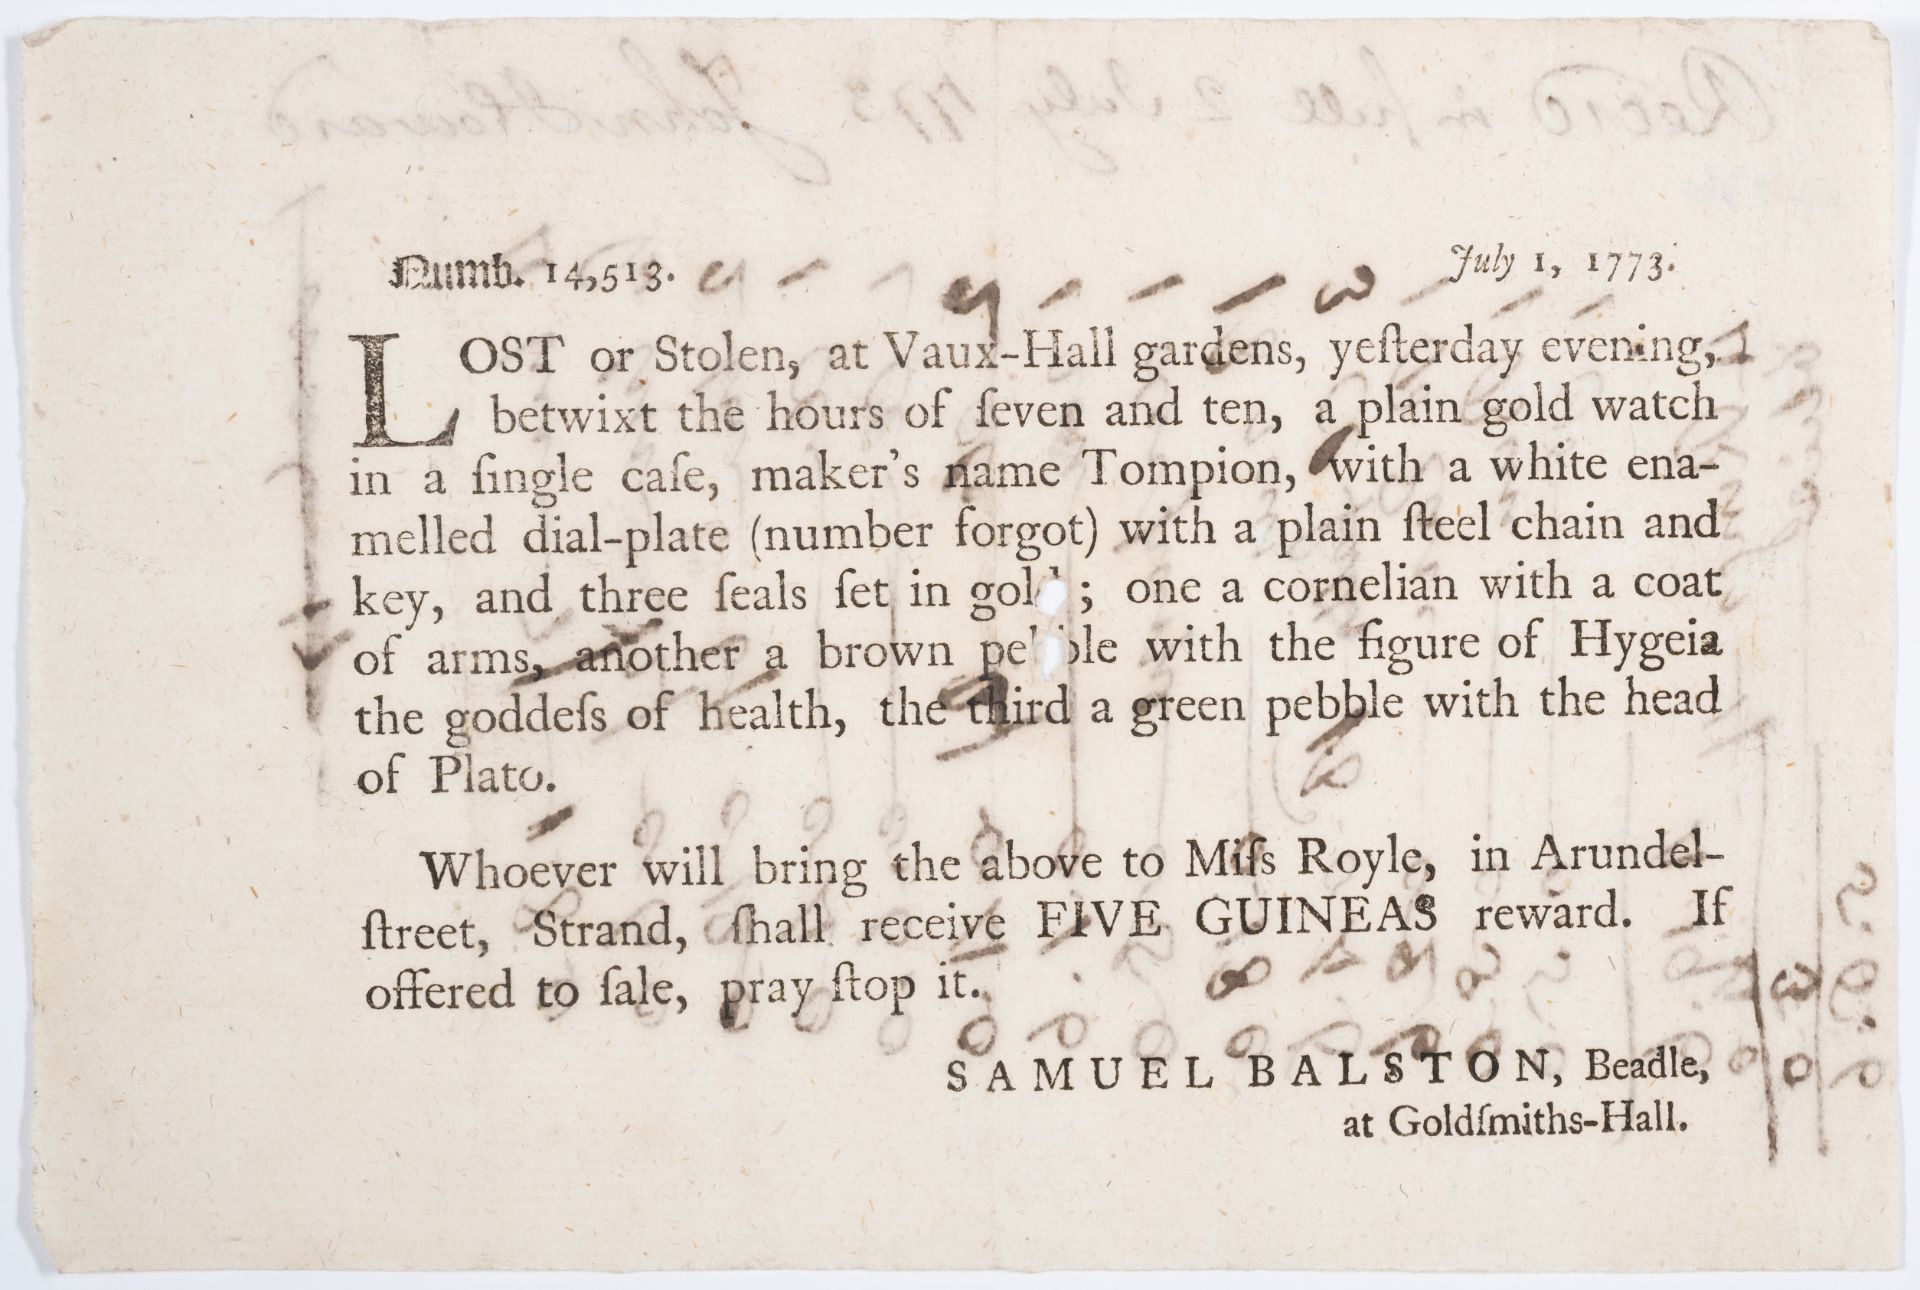 Numb. 14,513.
July 1, 1773.
LOST or Stolen, at Vaux-Hall gardens, yeſterday evening,
betwixt the hours of ſeven and ten, a plain gold watch
in a ſingle caſe, maker's name Tompion, with a white ena-
melled dial-plate (number forgot) with a plain ſteel chain and
key, and three ſeals ſet in gold; one a cornelian with a coat
of arms, another a brown pebble with the figure of Hygeia
the goddeſs of health, the third a green pebble with the head
of Plato.
Whoever will bring the above to Miſs Royle, in Arundel-
ſtreet, Strand, ſhall receive FIVE GUINEAS reward. If
offered to ſale, pray ſtop it.
SAMUEL BALSTON, Beadle,
at Goldſmiths-Hall.